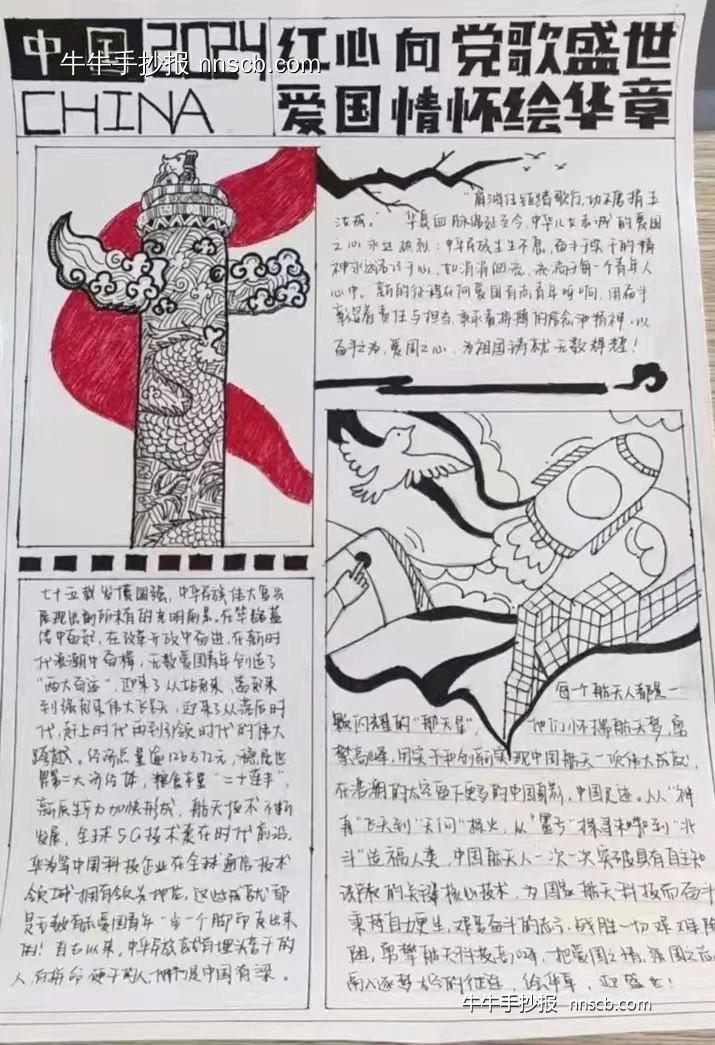 中国 2024
CHINA
牛牛手抄报 nnscb.com
红心向党歌盛世
爱国情怀绘华章
汝成。" 华夏血脉绵延至今,中华儿女赤诚的爱国
之心永远热烈;中华民族生生不息,奋斗实干的精
心中。新的征程在向爱国有志青年呼唤,用奋斗
彰显着责任与担当,秉承着拼搏的信念和精神,以
奋斗之为,爱国之心,为祖国铸就无数辉煌!
七十五载发愤图强,中华民族伟大复兴
展现出前所未有的光明前景。在筚路蓝
缕中奋起,在改革开放中奋进,在新时
代浪潮中奋楫,无数爱国青年创造了
"两大奇迹",迎来了从站起来、富起来
到强起来伟大飞跃,迎来了从落后时
代,赶上时代再到引领时代的伟大
跨越。经济总量逾126万亿元,稳居世
界第二大经济体,粮食丰产"二十连丰",
新质生产力加快形成,航天技术不断
发展,全球5G技术走在时代前沿,
华为等中国科技企业在全球通信技术
领域拥有领先地位,这些成就都
是无数有志爱国青年一步一个脚印走出来
的!自古以来,中华民族就有埋头苦干的
人,有拼命硬干的人,他们是中国脊梁。
每个航天人都是一
颗闪耀的"那天星",他们怀揣航天梦,勇
攀高峰,用实干和创新实现中国航天一次次伟大成就,
在浩瀚的太空留下更多的中国身影,中国足迹。从"神
舟"飞天到"天问"探火,从"墨子"探寻未知到"北
斗"造福人类,中国航天人一次一次突破具有自主知
识产权的关键核心技术,为国家航天科技而奋斗
秉持自力更生,艰苦奋斗的志气,战胜一切艰难险
阻,勇攀航天科技高峰,把爱国之情,强国之志
牛牛手抄报 nnscb.com